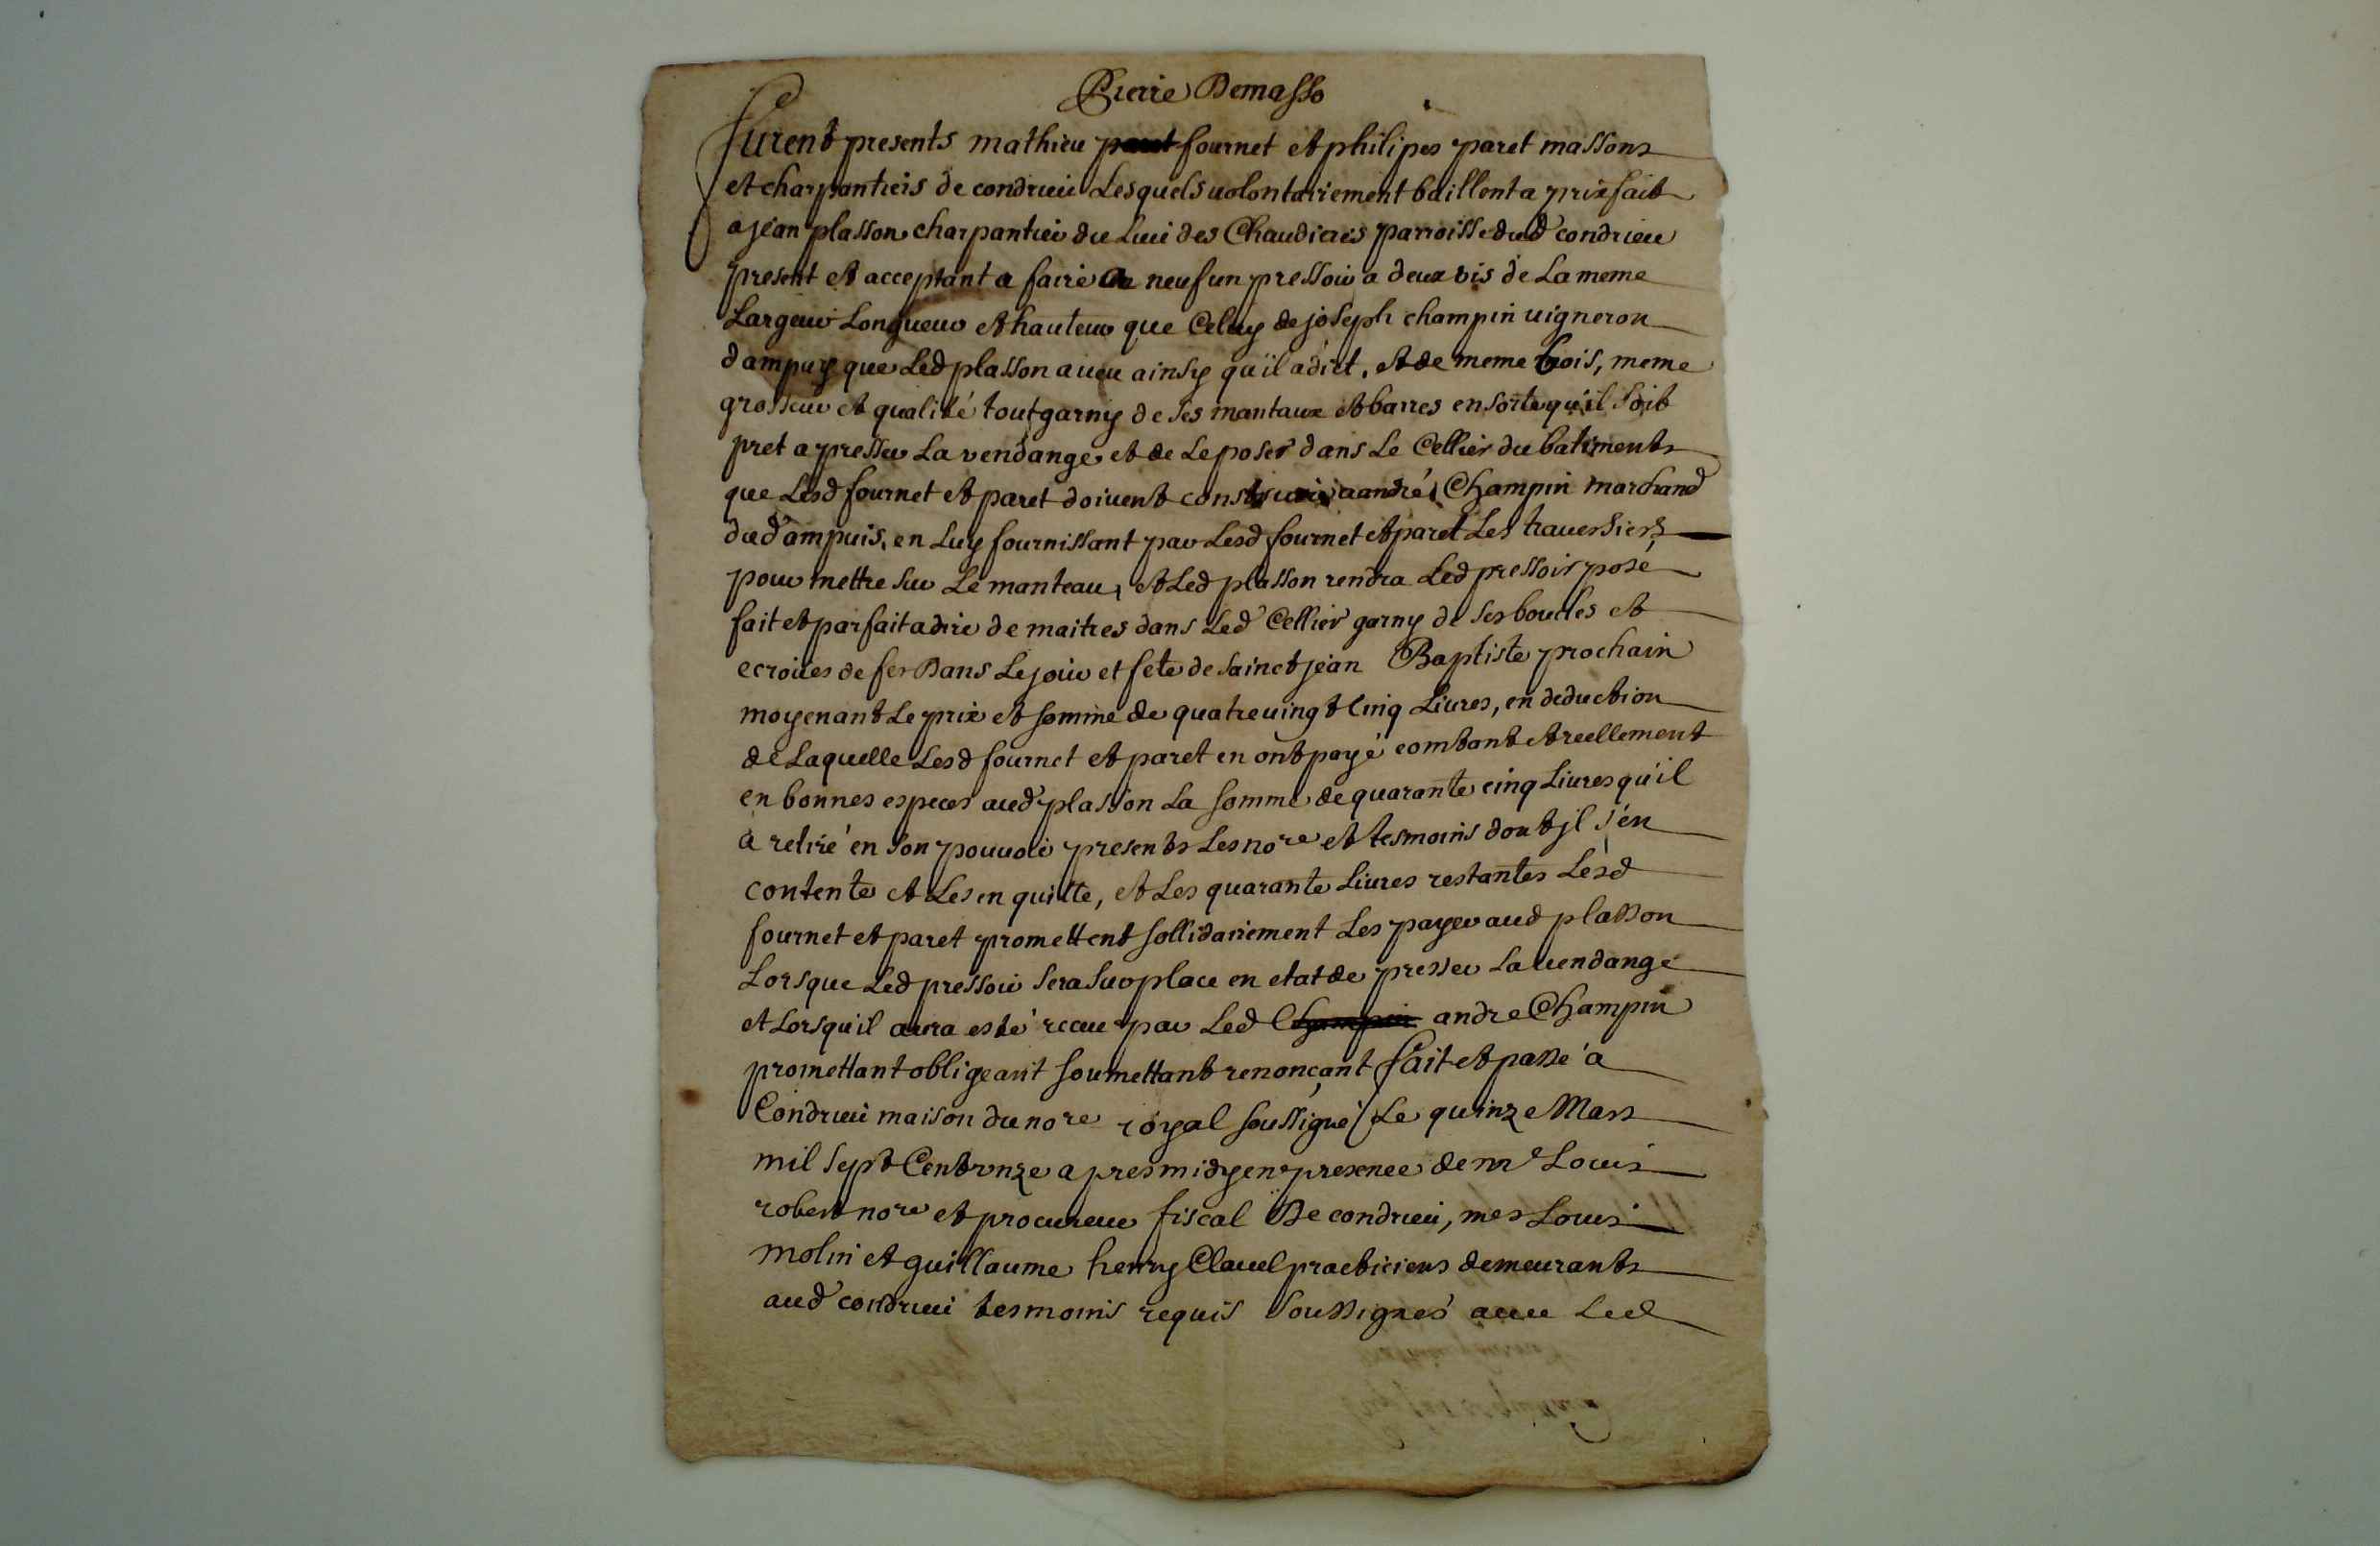 Pierre Demasso
furent presents mathieu fournet et philipes paret massons
et charpantieis de condrieu Lesquels volontairement baillent a prix fait
a jean plasson charpantier du Lieu des Chaudieres parroisse dud condrieu
present et acceptant a faire de neuf un pressoir a deux vis de La meme
Largeur Longueur et hauteur que Celuy de joseph champin vigneron
dampuy que Led plasson a veu ainsy qu'il a dict, et de meme bois, meme
grosseur et qualité tout garny de ses mantaux et barres en sorte qu'il soit
pret a presser La vendange et de Le poser dans Le Cellier du batiments
que Lesd fournet et paret doivent construire a andré Champin marchand
dud ampuis, en Luy fournissant par Lesd fournet et paret Les traversiers
pour mettre sur Le manteau, et Led plasson rendra Led pressoir posé
fait et parfait a dire de maitres dans Led Cellier garny de ses boucles et
ecroües de fer Dans Le jour et fete de sainct jean Baptiste prochain
moyenant Le prix et somme de quatre vingt Cinq Livres, en deduction
de Laquelle Lesd fournet et paret en ont payé comtant et reellement
en bonnes especes aud plasson La somme de quarante cinq Livres qu'il
a retiré en son pouvoir presents Les nore et tesmoins dont jl s'en
contente et Les en quitte, et Les quarante Livres restantes Lesd
fournet et paret promettent sollidairement Les payer aud plasson
Lorsque Led pressoir sera sur place en etat de presser La vendange
et Lorsqu'il aura esté receu par Led Champin andre Champin
promettant obligeant soumettant renonçant fait et passé a
Condrieu maison du nore royal soussigné Le quinze Mars
mil sept Cent onze apres midy en presence de me Louis
robert nore et procureur fiscal De condrieu, mes Louis
molin et guillaume henry Clavel practiciens demeurants
aud condrieu tesmoins requis soussignés avec Led